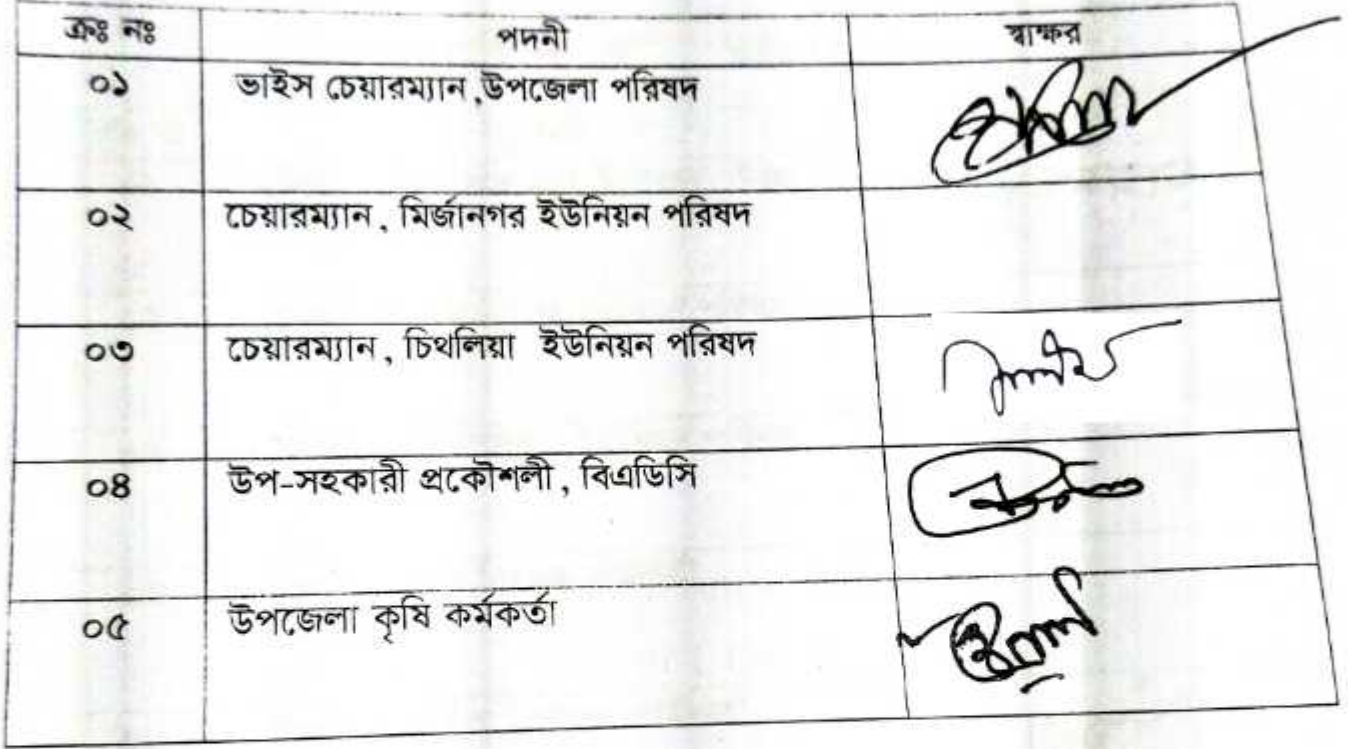 ক্রঃ নঃ পদনী স্বাক্ষর
০১ ভাইস চেয়ারম্যান,উপজেলা পরিষদ
০২ চেয়ারম্যান, মির্জানগর ইউনিয়ন পরিষদ
০৩ চেয়ারম্যান, চিথলিয়া ইউনিয়ন পরিষদ
০৪ উপ-সহকারী প্রকৌশলী, বিএডিসি
০৫ উপজেলা কৃষি কর্মকর্তা